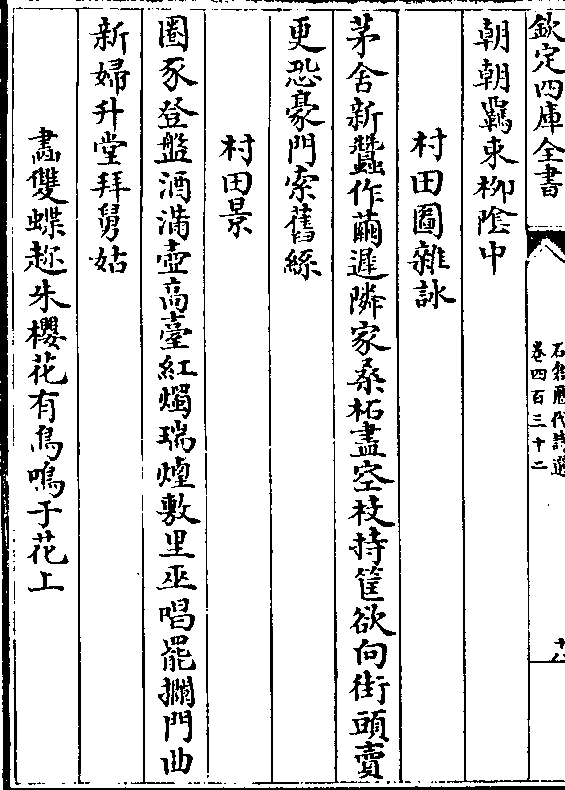 欽定四庫全書
石倉歷代詩選
卷四百三十二
朝朝羈束柳陰中
村田圖雜詠
茅舍新蠶作繭遲隣家桑柘盡空枝持筐欲向街頭賣
更恐豪門索舊絲
村田景
圈豕登盤酒滿壺高臺紅燭瑞煙敷里巫唱罷攔門曲
新婦升堂拜舅姑
畵雙蝶趂朱櫻花有鳥鳴于花上